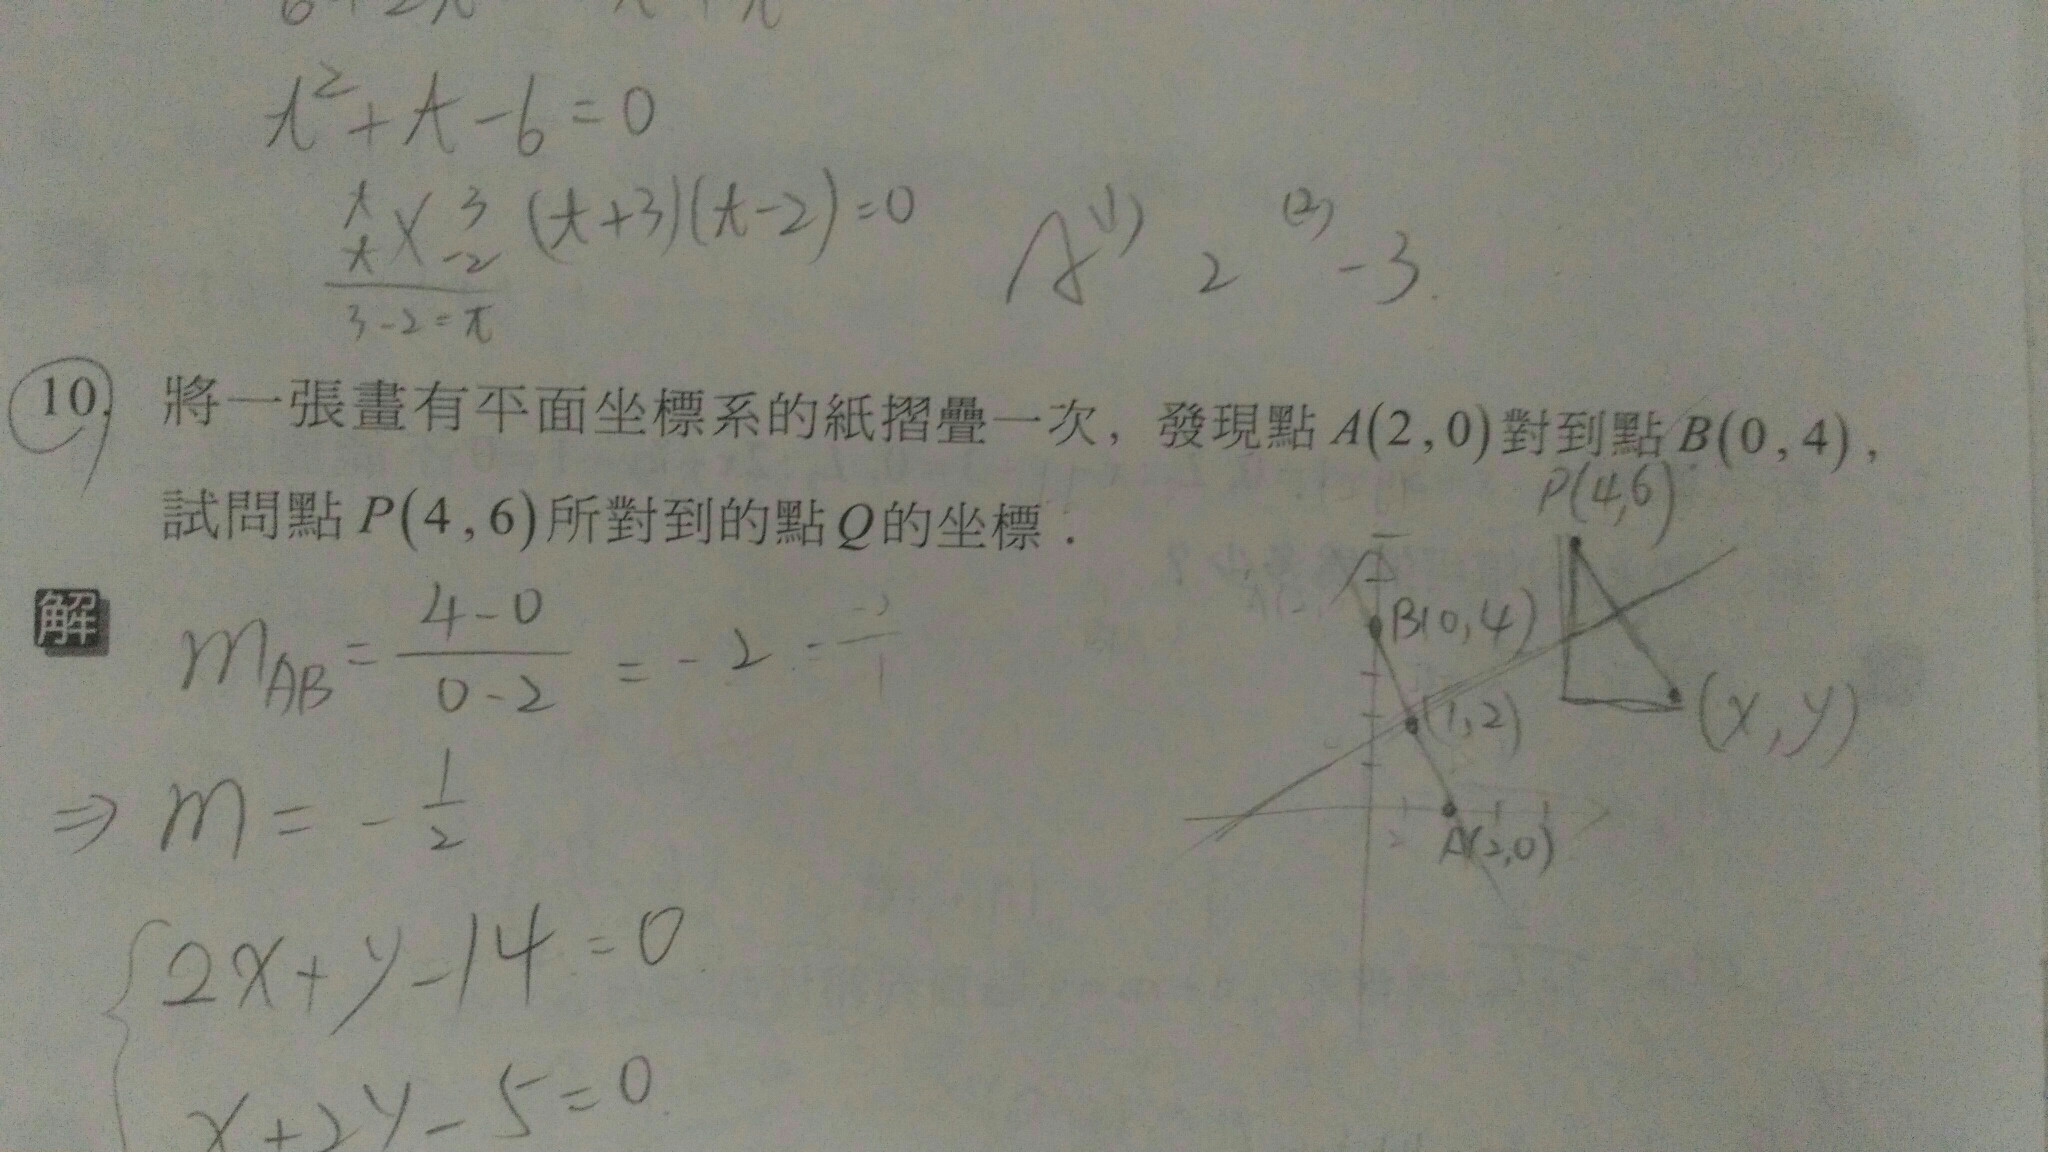 t²+t-6=0
t 3 (t+3)(t-2)=0 A (1) 2 (2) -3.
t -2
3-2=t
10. 將一張畫有平面坐標系的紙摺疊一次，發現點 A(2,0)對到點 B(0,4)，
試問點 P(4,6)所對到的點Q的坐標．
P(4,6)
解 m_AB = (4-0)/(0-2) = -2
B(0,4)
(1,2)
(x,y)
⇒ m = -1/2
A(2,0)
2x+y-14=0
x+2y-5=0